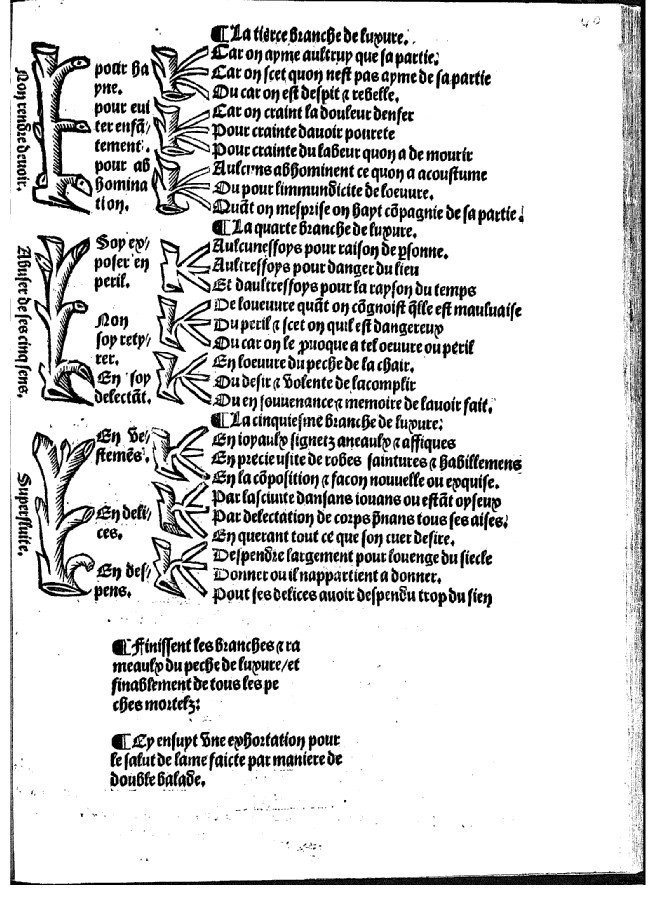 40
¶ La tierce branche de luxure.
Non rendre devoir.
pour ha
yne.
Car on ayme aultruy que sa partie.
Car on scet quon nest pas ayme de sa partie
Ou car on est despit ⁊ rebelle.
pour eui
ter enfã/
tement.
Car on craint la douleur denfer
Pour crainte dauoir pourete
Pour crainte du labeur quon a de mourir
pour ab
homina
tion.
Aulcuns abhominent ce quon a acoustume
Ou pour limmundicite de loeuure.
Quãt on mesprise on hayt cõpagnie de sa partie.
¶ La quarte branche de luxure.
Abuser de ses cinq sens.
Soy ex/
poser en
peril.
Aulcuneffoys pour raison de psonne.
Aultreffoys pour danger du lieu
Et daultreffoys pour la rayson du temps
Non
soy rety/
rer.
De loueuure quãt on cõgnoist q̃lle est mauluaise
Du peril ⁊ scet on quil est dangereux
Ou car on le puoque a tel oeuure ou peril
En soy
delectãt.
En loeuure du peche de la chair.
Ou desir ⁊ volente de lacomplir
Ou en souuenance ⁊ memoire de lauoir fait.
¶ La cinquiesme branche de luxure.
Superfluite.
En ve/
stemẽs.
En ioyaulx signetz aneaulx ⁊ affiques
En precieusite de robes saintures ⁊ habillemens
En la cõposition ⁊ facon nouuelle ou exquise.
En deli/
ces.
Par lasciuite dansans iouans ou estãt oyseux
Par delectation de corps p̃nans tous ses aises.
En querant tout ce que son cuer desire.
En des/
pens.
Despendre largement pour louenge du siecle
Donner ou il nappartient a donner.
Pour ses delices auoir despendu trop du sien
¶ Finissent les branches ⁊ ra
meaulx du peche de luxure/et
finablement de tous les pe
ches mortelz:
¶ Cy ensuyt vne exhortation pour
le salut de lame faicte par maniere de
double balade.